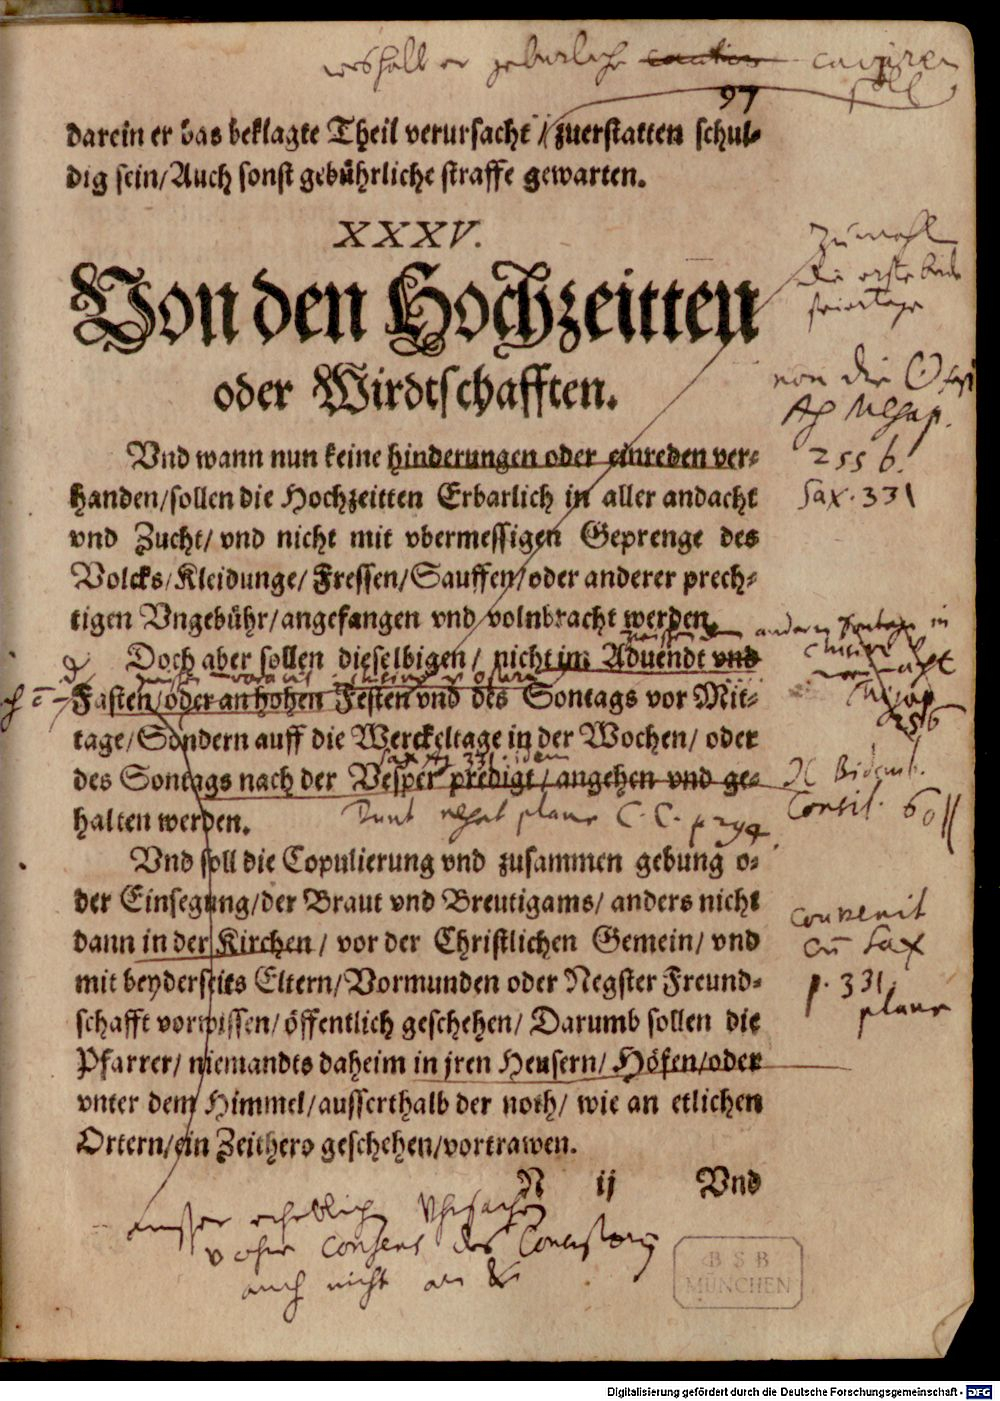 weshalb er geburliche caviren
soll
97
darein er das beklagte Theil verursacht / zuerstatten schul⸗
dig sein/Auch sonst gebührliche straffe gewarten.
XXXV.
Von den Hochzeitten
oder Wirdtschafften.
Vnd wann nun keine hinderungen oder einreden ver⸗
handen/sollen die Hochzeitten Erbarlich in aller andacht
vnd Zucht/ vnd nicht mit vbermessigen Geprenge des
Volcks/Kleidunge/Fressen/Sauffen/oder anderer prech⸗
tigen Vngebühr/angefangen vnd volnbracht werden.
Doch aber sollen dieselbigen/ nicht im Aduendt vnd
Fasten/oder an hohen Festen vnd des Sontags vor Mit⸗
tage/Sondern auff die Werckeltage in der Wochen/ oder
des Sontags nach der Vesper predigt/angehen vnd ge⸗
halten werden.
Vnd soll die Copulierung vnd zusammen gebung o⸗
der Einsegung/der Braut vnd Breutigams/ anders nicht
dann in der Kirchen/ vor der Christlichen Gemein/ vnd
mit beyderseits Eltern/Vormunden oder Negster Freund⸗
schafft vorwissen/öffentlich geschehen/ Darumb sollen die
Pfarrer/ niemandts daheim in jren Heusern/ Höfen/oder
vnter dem Himmel/ausserthalb der noth/ wie an etlichen
Ortern/ein Zeithero geschehen/vortrawen.
N ij Vnd
zumahl
die erste
feiertage
von die
255 b.
Sax. 331
256
Consil. 60
convenit
cū Sax
p. 331
plane
ausser erheblichen Vhrsachen
consens des
auch nicht an
BSB
MÜNCHEN
Digitalisierung gefördert durch die Deutsche Forschungsgemeinschaft - DFG